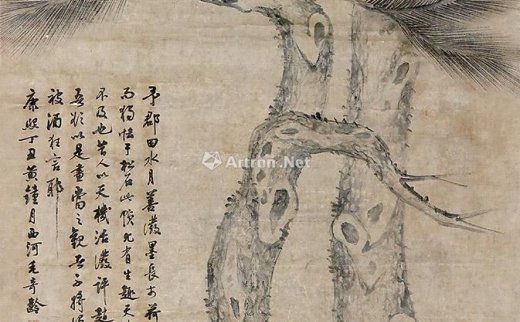 予郡田水月善潑墨長于荷
而獨怪于松石此幀尤有生趣天
不及也昔人以天機活潑許趙
吾於以是畫當之觀者不將謂
被酒狂言耶
康熙丁丑黃鐘月西河毛奇齡
Artron.Net